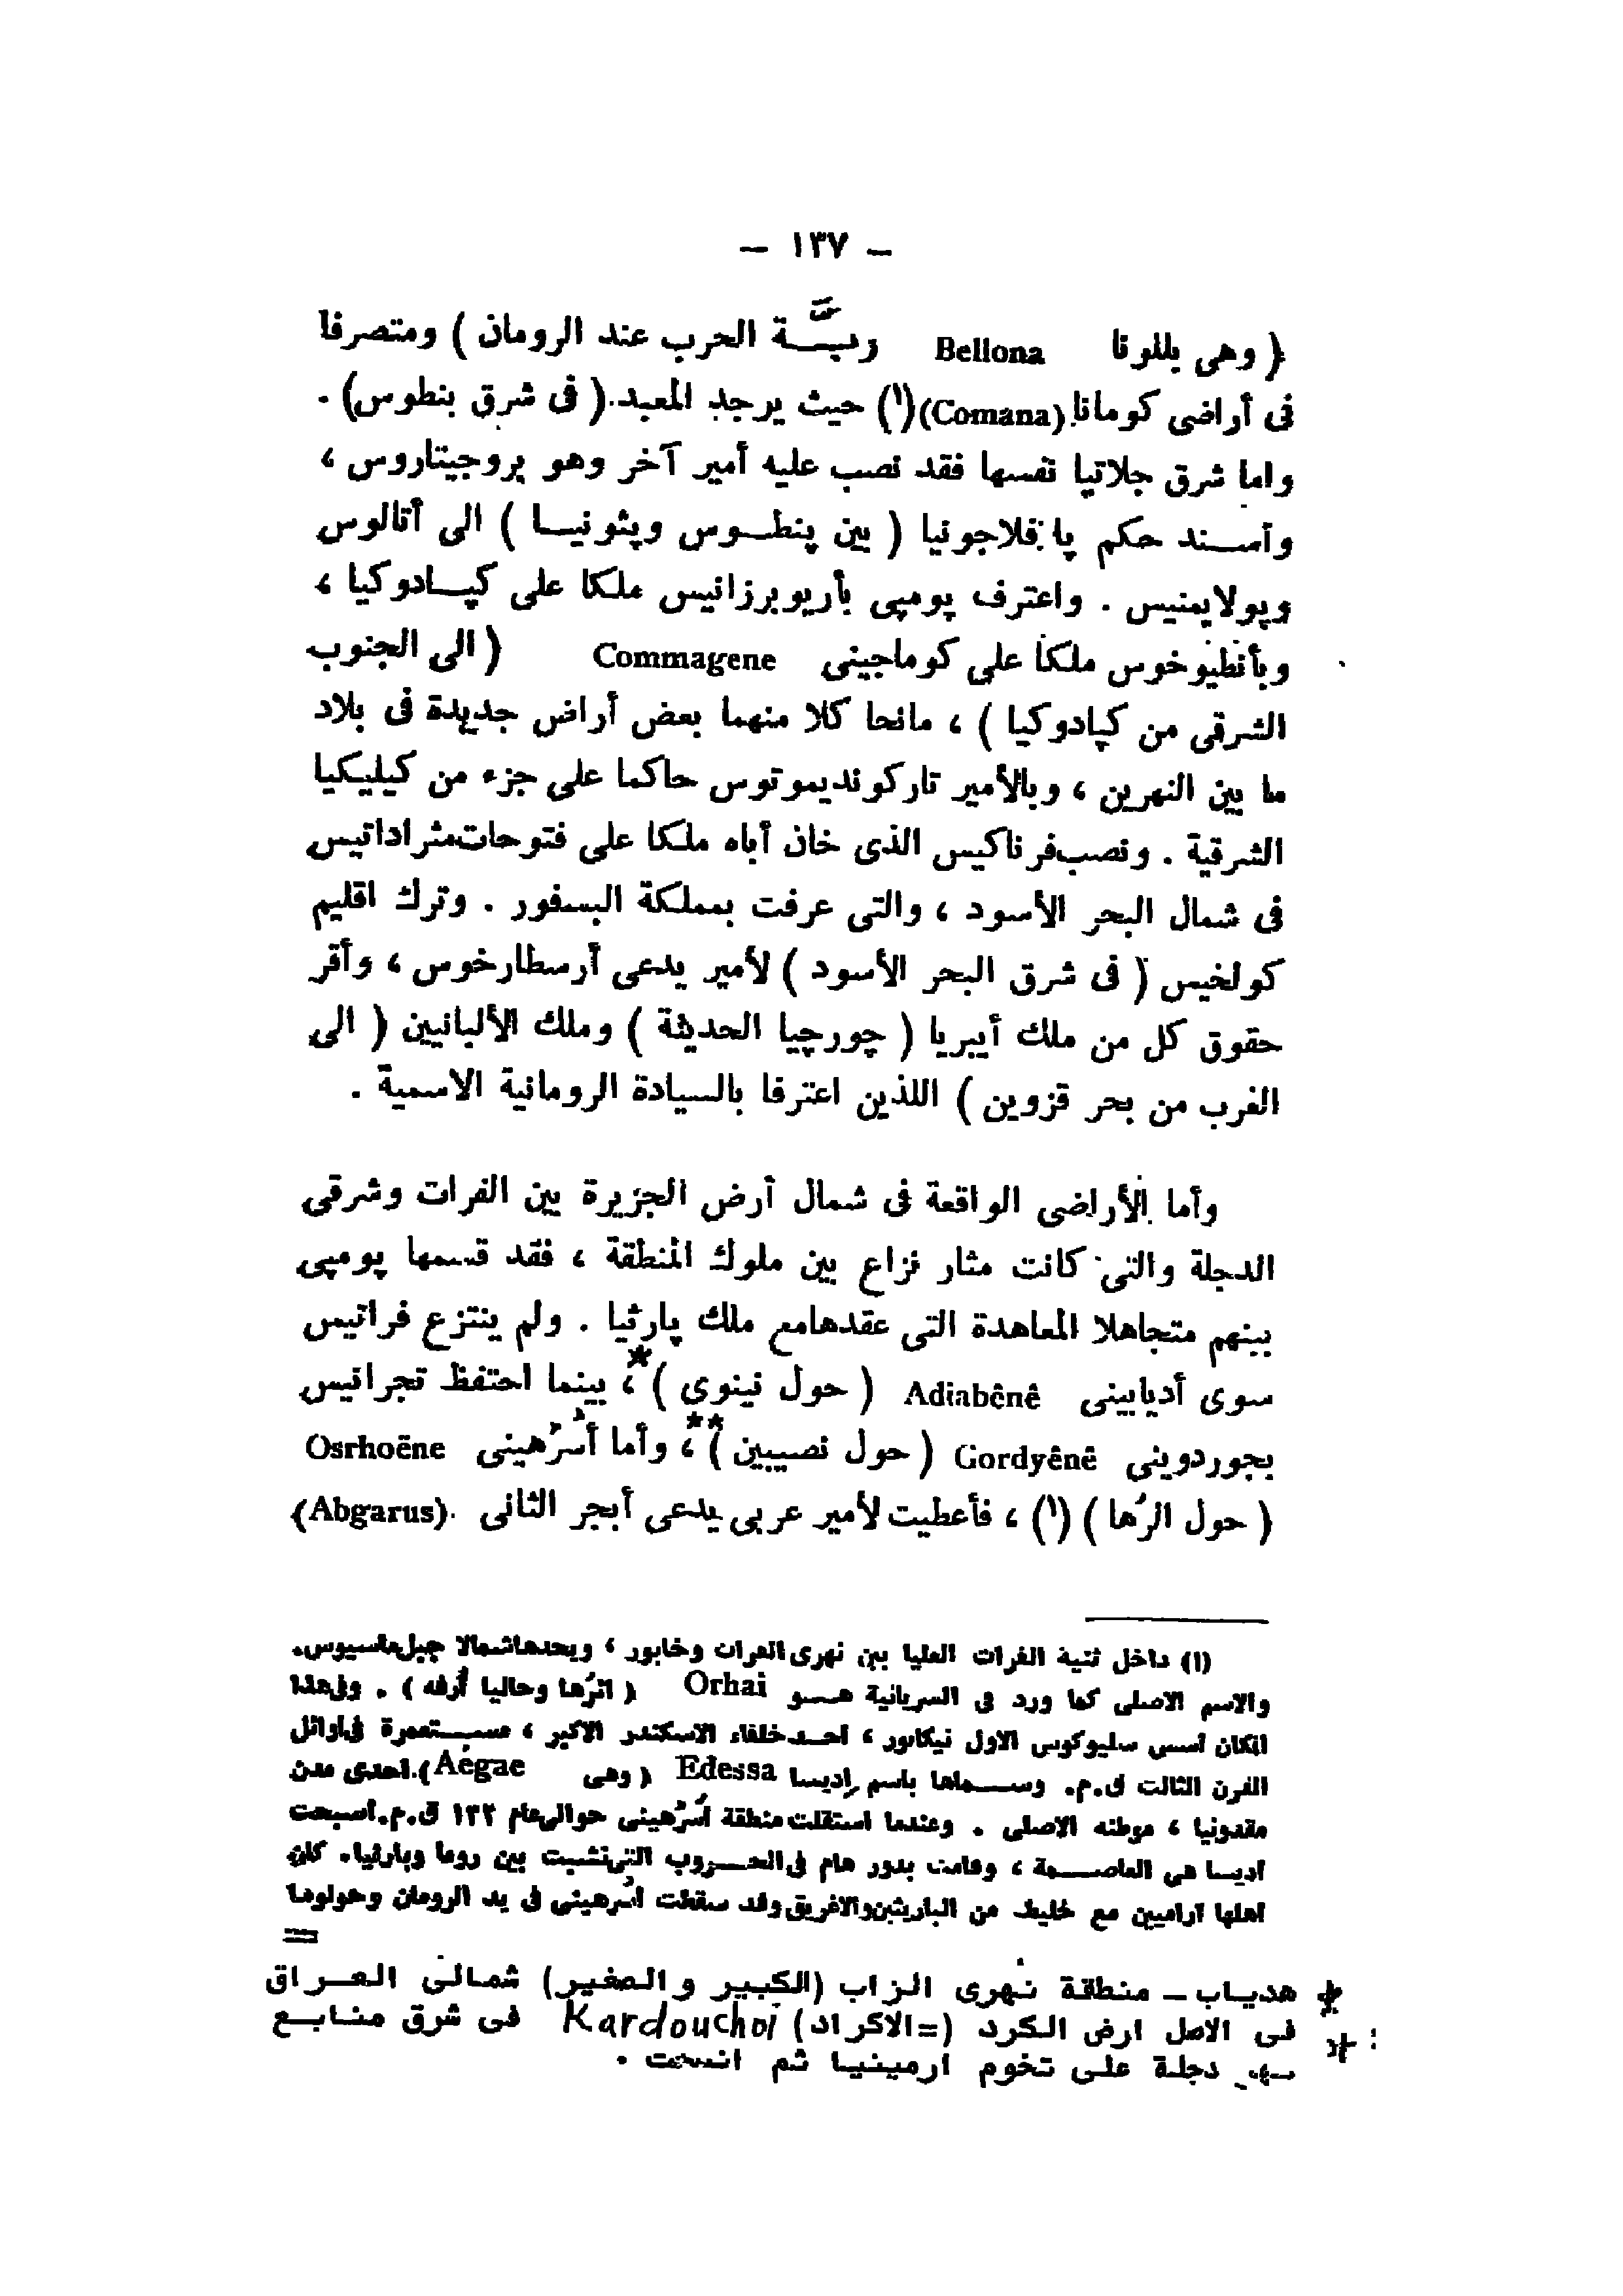 — ١٣٧ —
( وهى بللونا Bellona ربَّة الحرب عند الرومان ) ومتصرفا
فى أراضى كومانا (Comana)(١) حيث يوجد المعبد ( فى شرق بنطوس) .
واما شرق جلاتيا نفسها فقد نصب عليه أمير آخر وهو بروجيتاروس ،
وأسـند حكم پافلاجونيا ( بين پنطـوس وبثونيـا ) الى أتالوس
وپولايمنيس . واعترف پومپى بأريوبرزانيس ملكا على كپـادوكيا ،
وبأنطيوخوس ملكا على كوماجينى Commagene ( الى الجنوب
الشرقى من كپادوكيا ) ، مانحا كلا منهما بعض أراض جديدة فى بلاد
ما بين النهرين ، وبالأمير تاركونديموتوس حاكما على جزء من كيليكيا
الشرقية . ونصب فرناكيس الذى خان أباه ملكا على فتوحات مثراداتيس
فى شمال البحر الأسود ، والتى عرفت بمملكة البسفور . وترك اقليم
كولخيس ( فى شرق البحر الأسود ) لأمير يدعى أرسطارخوس ، وأقر
حقوق كل من ملك أيبريا ( چورچيا الحديثة ) وملك الألبانيين ( الى
الغرب من بحر قزوين ) اللذين اعترفا بالسيادة الرومانية الاسمية .
وأما الأراضى الواقعة فى شمال أرض الجزيرة بين الفرات وشرقى
الدجلة والتى كانت مثار نزاع بين ملوك المنطقة ، فقد قسمها پومپى
بينهم متجاهلا المعاهدة التى عقدها مع ملك پارثيا . ولم ينتزع فراتيس
سوى أديابينى Adiabênê ( حول نينوى )* ، بينما احتفظ تجرانيس
بجوردوينى Gordyênê ( حول نصيبين )** ، وأما أسْرُهينى Osrhoëne
( حول الرُها ) (١) ، فأعطيت لأمير عربى يدعى أبجر الثانى (Abgarus)
(١) داخل ثنية الفرات العليا بين نهرى الفرات وخابور ، ويحدها شمالا جبل ماسيوس.
والاسم الاصلى كما ورد فى السريانية هـو Orhai ( الرُها وحاليا أُرفه ) . وفى هذا
المكان أسس سليوكوس الاول نيكاتور ، أحـد خلفاء الاسكندر الاكبر ، مسـتعمرة فى اوائل
القرن الثالث ق.م. وسـماها باسم إديسا Edessa ( وهى Aegae ) احدى مدن
مقدونيا ، موطنه الاصلى . وعندما استقلت منطقة أُسْرُهينى حوالى عام ١٣٢ ق.م. أصبحت
اديسا هى العاصـمة ، وقامت بدور هام فى الحـروب التى نشبت بين روما وبارثيا. كان
اهلها آراميين مع خليط من البارثين والاغريق وقد سقطت أسْرُهينى فى يد الرومان وحولوها
=
* هديـاب – منطقة نهرى الزاب (الكبير والصغير) شمالى العـراق
** فى الاصل ارض الكرد (=الاكراد) Kardouchoi فى شرق منـابـع
دجلة على تخوم ارمينيا ثم اتسعت .